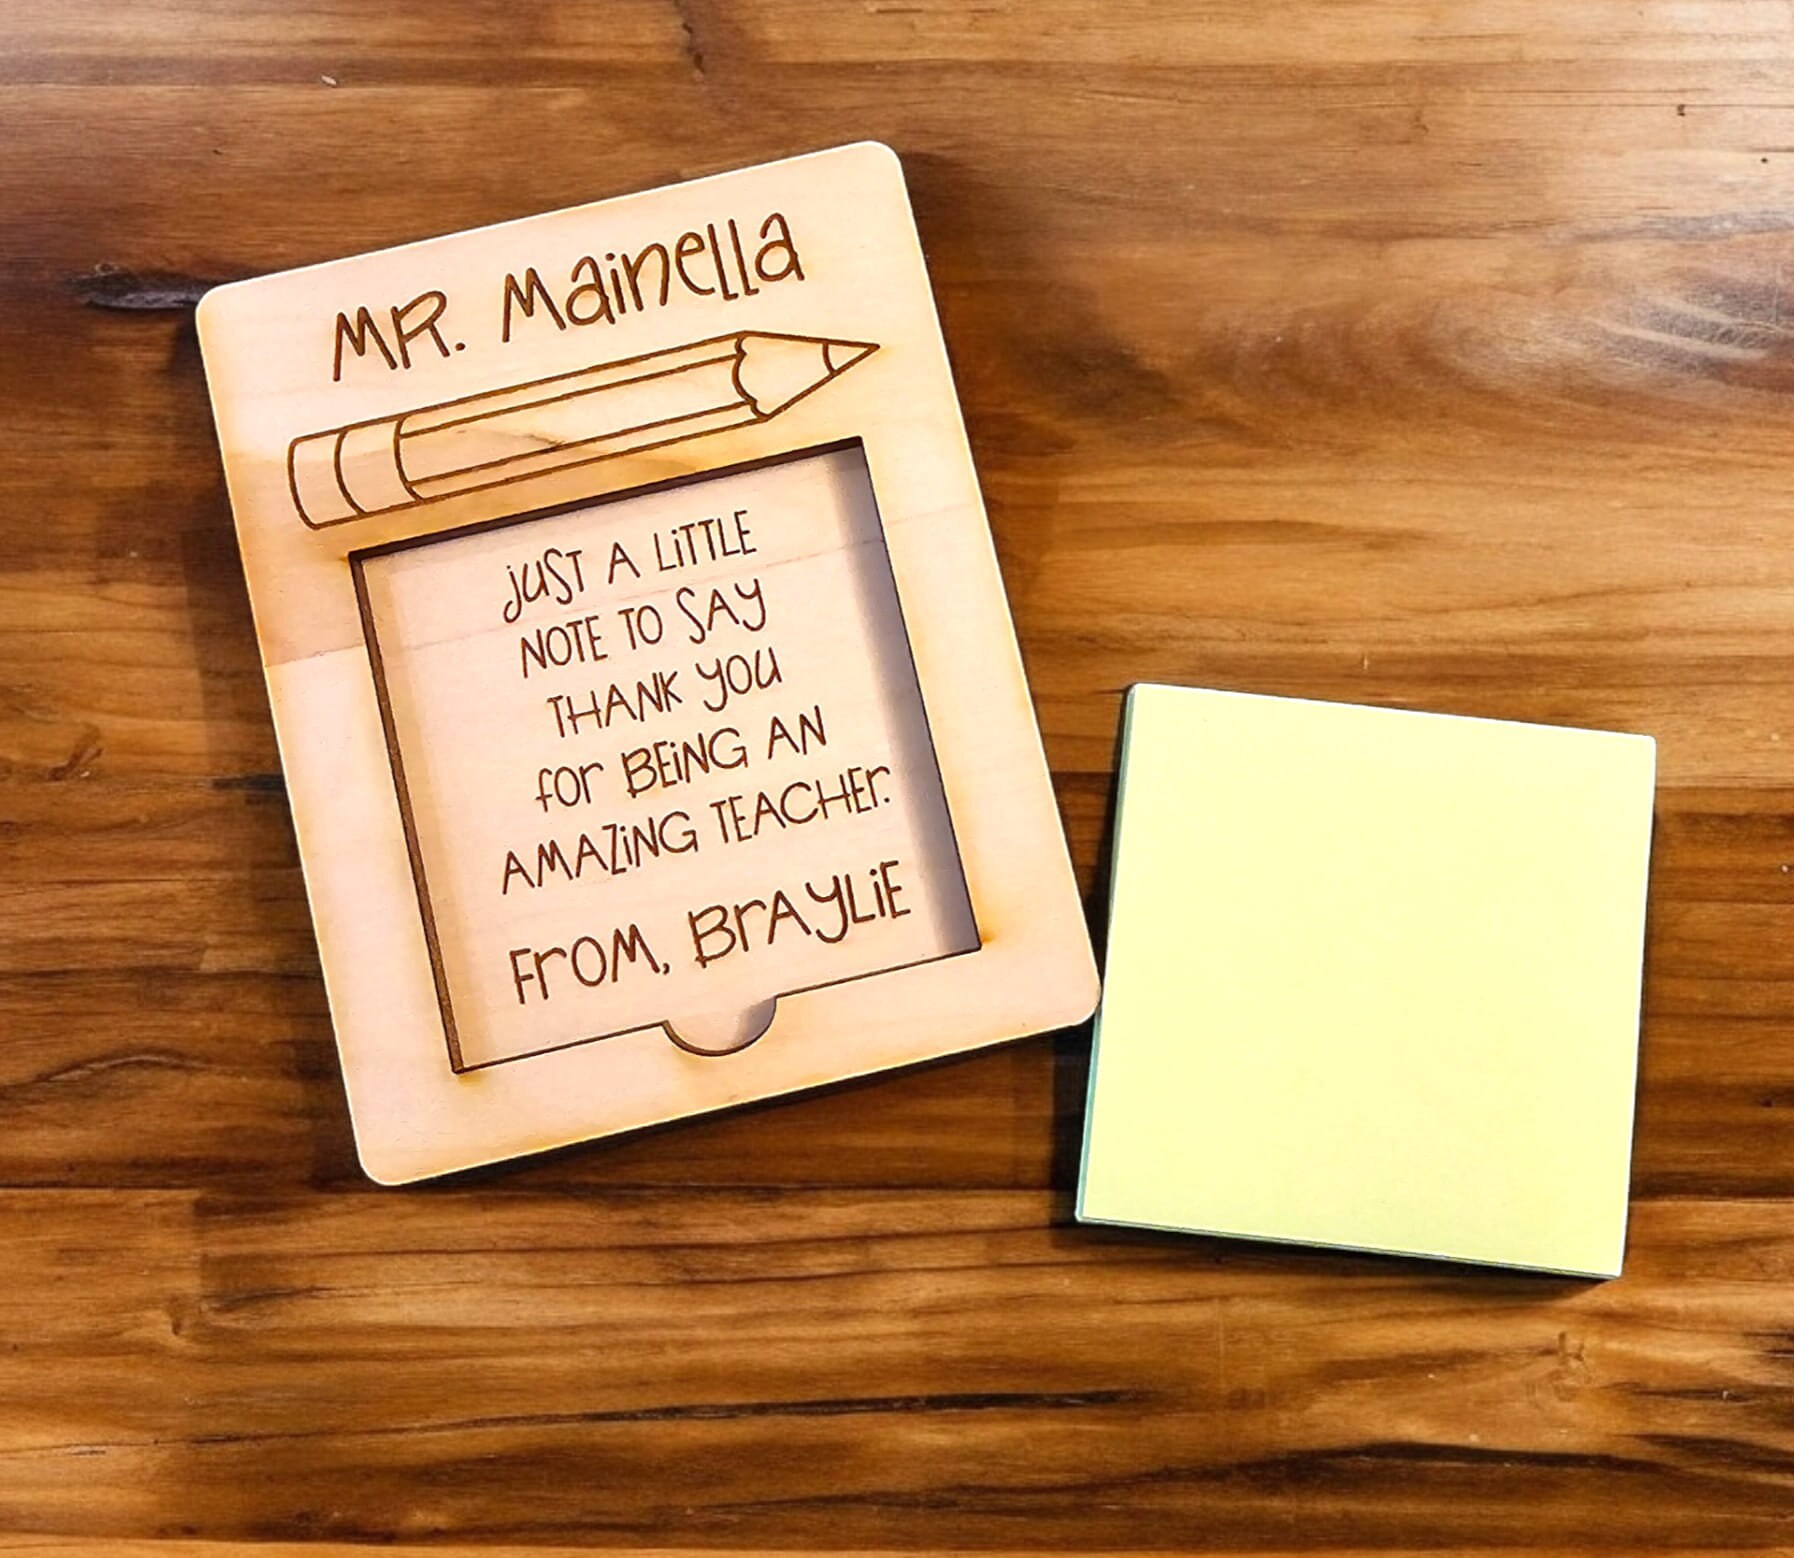 MR. Mainella
JUST A LiTTLE
NOTE TO SAY
THANK YOU
for BEiNG AN
AMAZiNG TEACHEr.
FrOM, BrAYLiE